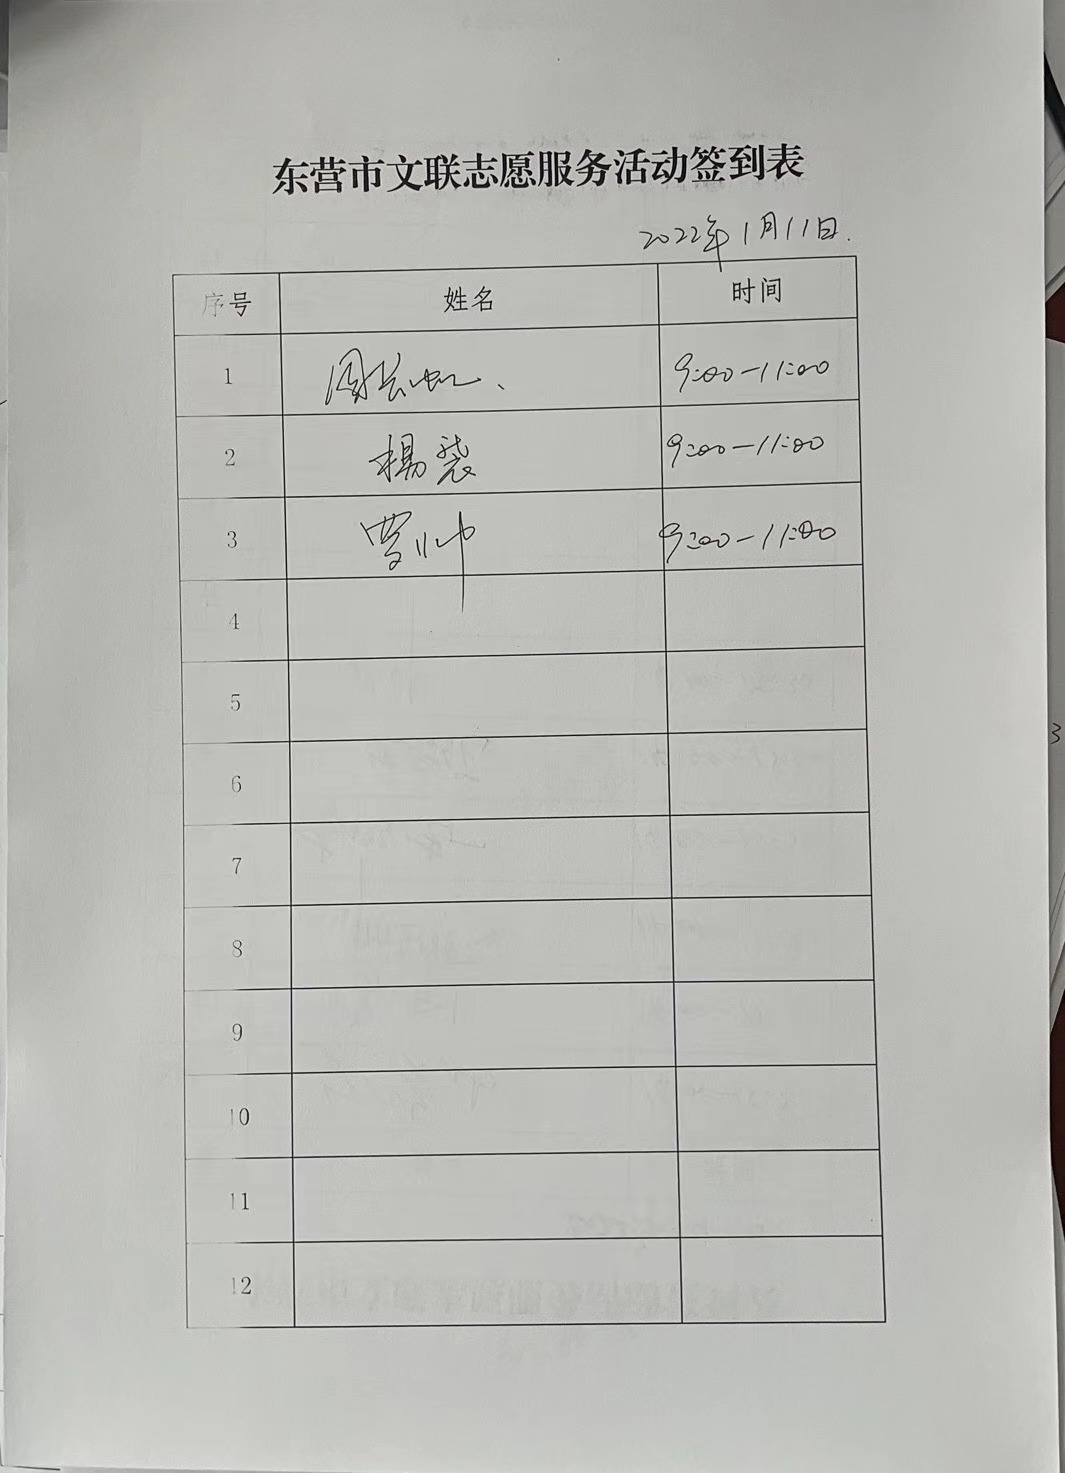 东营市文联志愿服务活动签到表
2022年1月11日.
序号 姓名 时间
1 周长虹、 9:00-11:00
2 杨裳 9:00-11:00
3 贾帅 9:00-11:00
4
5
6
7
8
9
10
11
12
3